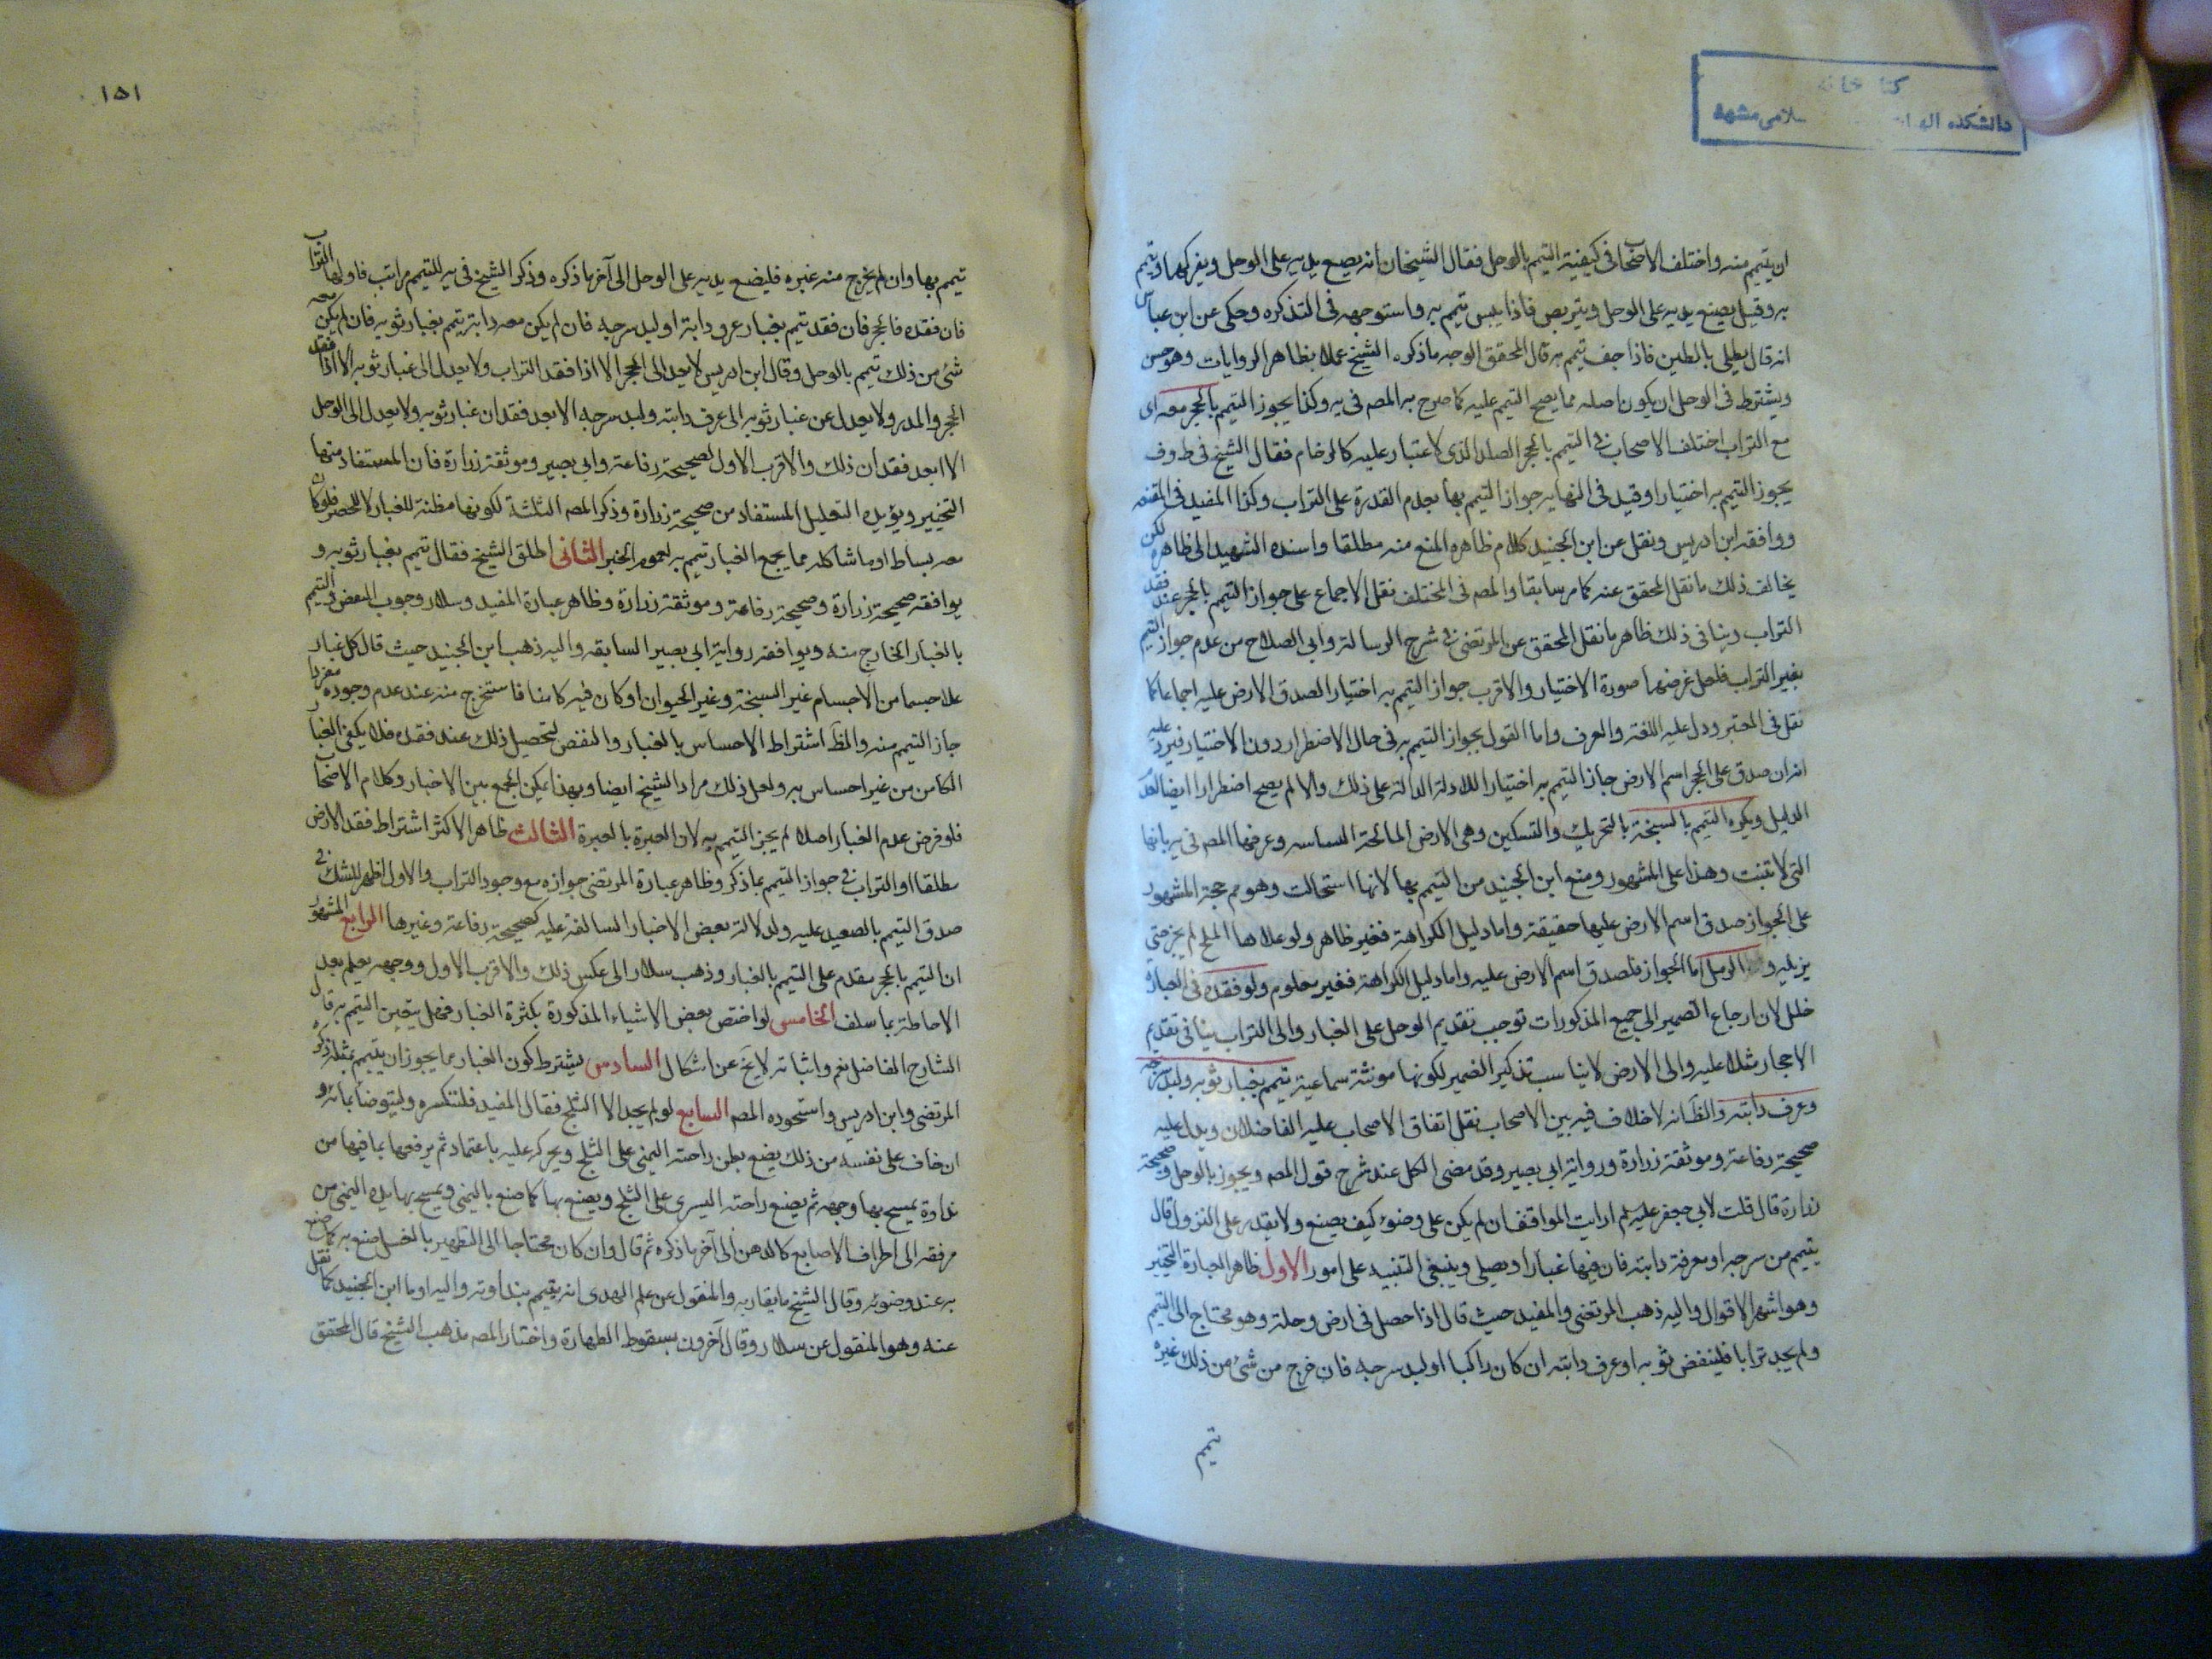 كتا خانه
دانشكده الهيات سلامى مشهد
ان يتيمم منه واختلف الاصحاب فى كيفية التيمم بالوحل فقال الشيخان انه يضع يديه على الوحل ويفركهما ويتيمم
به وقيل يضع يديه على الوحل ويتربص فاذا يبس تيمم به واستوجهه فى التذكره وحكى عن ابن عباس
انه قال يطلى بالطين فاذا جف تيمم به قال المحقق الوجه ما ذكره الشيخ عملا بظاهر الروايات وهو حسن
ويشترط فى الوحل ان يكون اصله مما يصح التيمم عليه كما صرح به المصه فى يه وكذا يجوز التيمم بالحجر معه اى
مع التراب اختلف الاصحاب فى التيمم بالحجر الصلد الذى لا غبار عليه كالرخام فقال الشيخ فى ط وف
يجوز التيمم به اختيارا وقيد فى النهايه جواز التيمم بها بعدم القدرة على التراب وكذا المفيد فى المقنعه
ووافقه ابن ادريس ونقل عن ابن الجنيد كلام ظاهره المنع منه مطلقا واسنده الشهيد الى ظاهره لكن
يخالف ذلك ما نقل المحقق عنه كما مر سابقا والمصه فى المختلف نقل الاجماع على جواز التيمم بالحجر عند فقد
التراب وينافى ذلك ظاهر ما نقل المحقق عن المرتضى فى شرح الرسالة وابى الصلاح من عدم جواز التيمم
بغير التراب فلعل غرضهما صورة الاختيار والاقرب جواز التيمم به اختيارا لصدق الارض عليه اجماعا كما
نقل فى المعتبر ودل عليه اللغة والعرف واما القول بجواز التيمم به فى حال الاضطرار دون الاختيار فيرد عليه
انه ان صدق على الحجر اسم الارض جاز التيمم به اختيارا للادلة الدالة على ذلك والا لم يصح اضطرارا ايضا لعدم
الدليل ويكره التيمم بالسبخة بالتحريك والتسكين وهى الارض المالحة النشاشه وعرفها المصه فى يه بانها
التى لا تنبت وهذا على المشهور ومنع ابن الجنيد من التيمم بها لانها استحالت وهو مم حجة المشهور
على الجواز صدق اسم الارض عليها حقيقة واما دليل الكراهة فغير ظاهر ولو علاها الملح لم يجز حتى
يزيله و الرمل اما الجواز فلصدق اسم الارض عليه واما دليل الكراهة فغير معلوم ولو فقده فى العبارة
خلل لان ارجاع الضمير الى جميع المذكورات توجب تقديم الوحل على الغبار والى التراب ينافى تقديم
الاحجار مثلا عليه والى الارض لا يناسب تذكير الضمير لكونها مونثة سماعية تيمم بغبار ثوبه ولبد سرجه
وعرف دابته والظانه لا خلاف فيه بين الاصحاب نقل اتفاق الاصحاب عليه الفاضلان ويدل عليه
صحيحة رفاعة وموثقة زرارة ورواية ابى بصير وقد مضى الكل عند شرح قول المصه ويجوز بالوحل وصحيحة
زرارة قال قلت لابى جعفر عليه لم ارايت المواقف ان لم يكن على وضوء كيف يصنع ولا يقدر على النزول قال
يتيمم من سرجه او معرفة دابته فان فيها غبارا ويصلى وينبغى التنبيه على امور الاول ظاهر العبارة التخيير
وهو اشهر الاقوال واليه ذهب المرتضى والمفيد حيث قال اذا حصل فى ارض وحلة وهو محتاج الى التيمم
ولم يجد ترابا فلينفض ثوبه او عرف دابته ان كان راكبا او لبد سرجه فان خرج من شئ من ذلك غبره
تيمم
١٥١
تيمم بها وان لم يخرج منه غبره فليضع يديه على الوحل الى آخر ما ذكره وذكر الشيخ فى يه للتيمم مراتب فاولها التراب
فان فقده فالحجر فان فقد تيمم بغبار عرف دابته او لبد سرجه فان لم يكن معه دابة تيمم بغبار ثوبه فان لم يكن معه
شئ من ذلك تيمم بالوحل وقال ابن ادريس لا يعدل الى الحجر الا اذا فقد التراب ولا يعدل الى غبار ثوبه الا اذا فقد
الحجر والمدر ولا يعدل عن غبار ثوبه الى عرف دابته ولبد سرجه الا بعد فقدان غبار ثوبه ولا يعدل الى الوحل
الا بعد فقدان ذلك والاقرب الاول لصحيحة رفاعة وابى بصير وموثقة زرارة فان المستفاد منها
التخيير ويؤيده التعليل المستفاد من صحيحة زرارة وذكر المصه الثلثة لكونها مظنة للغبار لا للحصر فلو كان
معه بساط او ما شاكله مما يجمع الغبار تيمم به لعموم الخبر الثانى اطلق الشيخ فقال تيمم بغبار ثوبه و
يوافقه صحيحة زرارة وصحيحة رفاعة وموثقة زرارة وظاهر عبارة المفيد وسلار وجوب النفض والتيمم
بالغبار الخارج منه ويوافقه رواية ابى بصير السابقه واليه ذهب ابن الجنيد حيث قال كل غبار
علا جسما من الاجسام غير السبخة وغير الحيوان او كان فيه كامنا فاستخرج منه عند عدم وجوده مفردا
جاز التيمم منه والظ اشتراط الاحساس بالغبار والنفض لتحصيل ذلك عند فقده فلا يكفى الغبار
الكامن من غير احساس به ولعل ذلك مراد الشيخ ايضا وبهذا يمكن الجمع بين الاخبار وكلام الاصحاب
فلو فرض عدم الغبار اصلا لم يجز التيمم به لان العبرة بالغبرة الثالث ظاهر الاكثر اشتراط فقد الارض
مطلقا او التراب فى جواز التيمم بما ذكر وظاهر عبارة المرتضى جوازه مع وجود التراب والاول اظهر للشك فى
صدق التيمم بالصعيد عليه ولدلالة بعض الاخبار السالفة عليه كصحيحة رفاعة وغيرها الرابع المشهور
ان التيمم بالحجر مقدم على التيمم بالغبار وذهب سلار الى عكس ذلك والاقرب الاول ووجهه يعلم بعد
الاحاطة بما سلف الخامس لو اختص بعض الاشياء المذكورة بكثرة الغبار فهل يتعين التيمم به قال
الشارح الفاضل نعم واثباته لا يخ عن اشكال السادس يشترط كون الغبار مما يجوز ان يتيمم بمثله ذكره
المرتضى وابن ادريس واستجوده المصه السابع لو لم يجد الا الثلج فقال المفيد فلتكسره وليتوضا بمائه و
ان خاف على نفسه من ذلك يضع بطن راحته اليمنى على الثلج ويحركه عليه باعتماد ثم يرفعها بما فيها من
نداوة يمسح بها وجهه ثم يضع راحته اليسرى على الثلج ويصنع بها كما صنع باليمنى ويمسح بها يده اليمنى من
مرفقه الى اطراف الاصابع كالدهن الى آخر ما ذكره ثم قال وان كان محتاجا الى التطهير بالغسل صنع به كما صنع
به عند وضوئه وقال الشيخ ما يقاربه والمنقول عن علم الهدى انه يتيمم بنداوته واليه اوما ابن الجنيد كما نقل
عنه وهو المنقول عن سلار وقال آخرون بسقوط الطهارة واختار المصه مذهب الشيخ قال المحقق